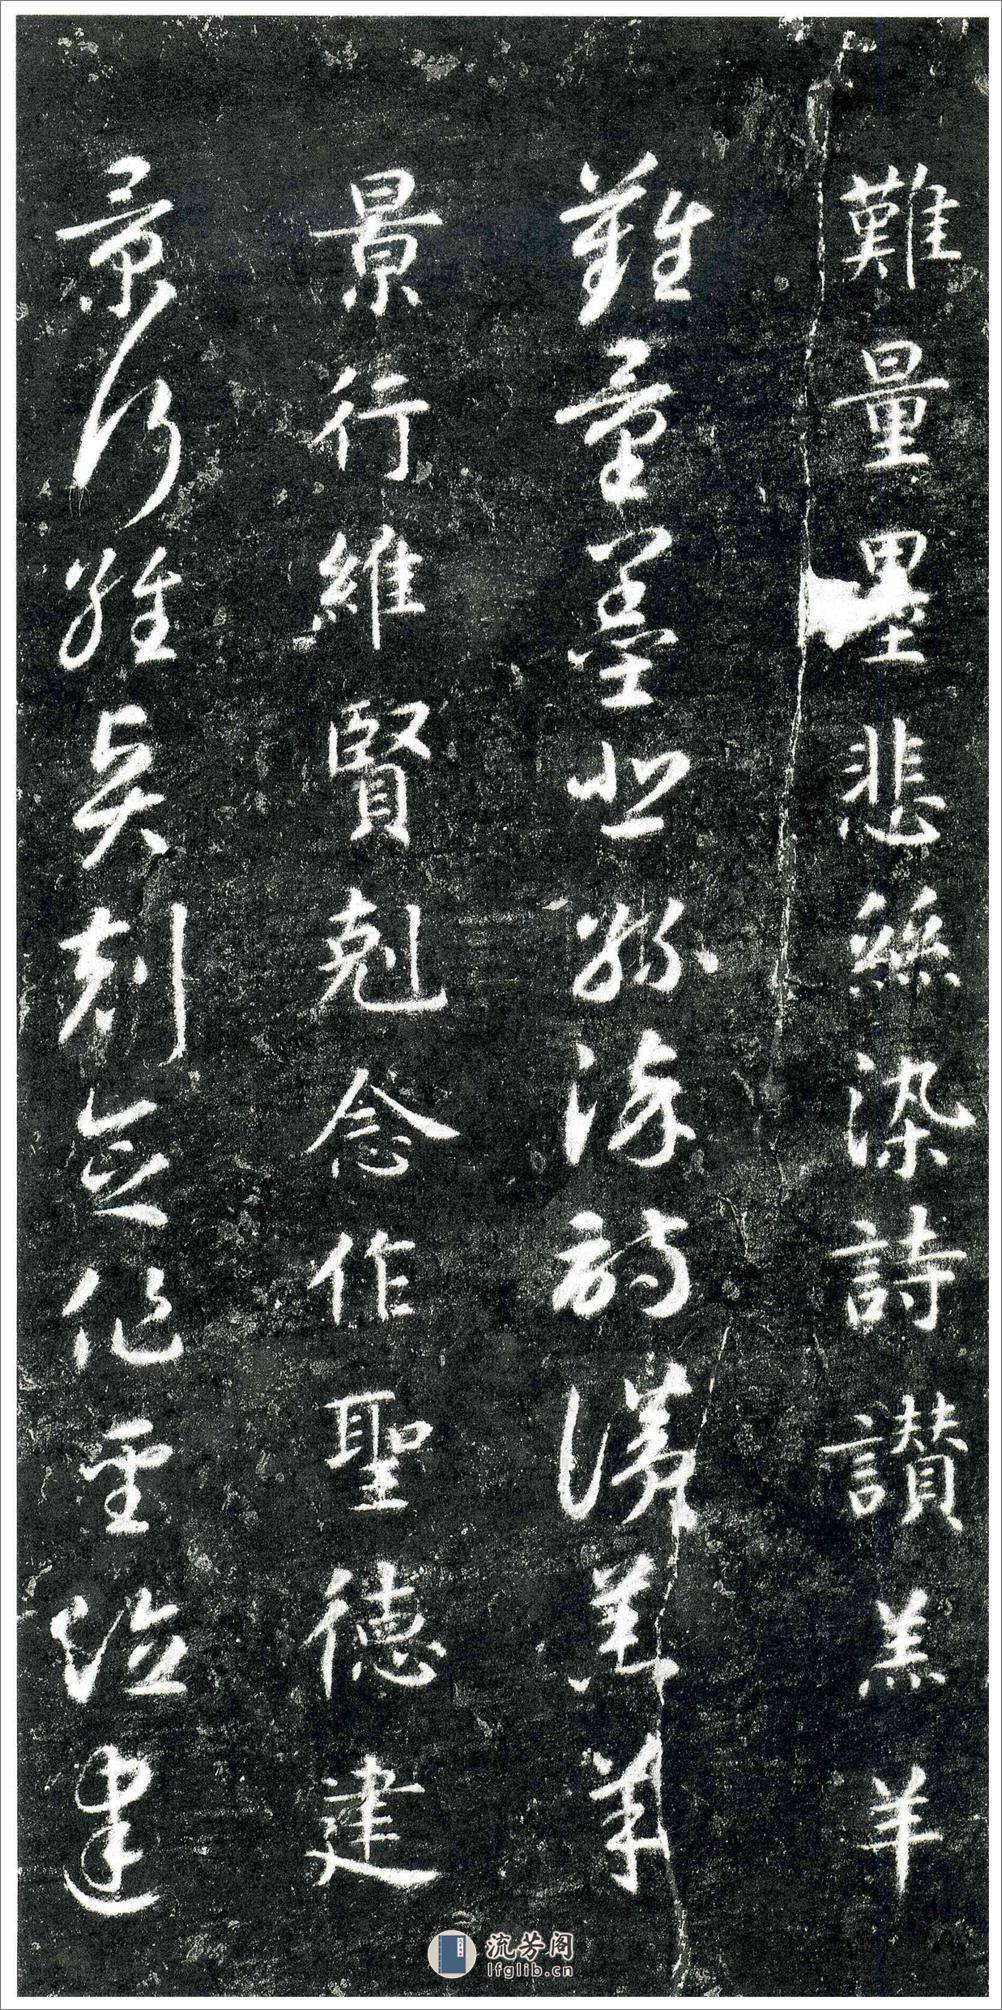 難量墨悲絲染詩讚羔羊
難量墨悲絲染詩讚羔羊
景行維賢剋念作聖德建
景行維賢剋念作聖德建
流芳阁
lfglib.cn